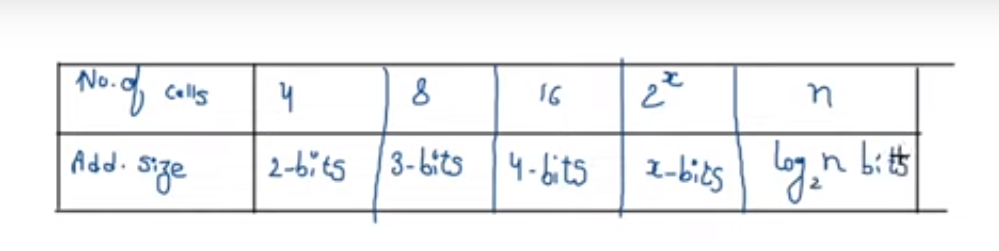 No. of cells 4 8 16 2^x n
Add. size 2-bits 3-bits 4-bits x-bits log₂n bits